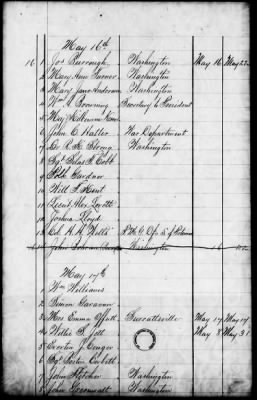 May 16th
16 1 Jos Burrough Washington May 16 May 22
2 Mary Ann Turner Washington
3 Mary Jane Anderson Washington
4 Wm Browning Secretary to President
5 Maj Kilbourn
6 John C. Hatter War Department
7 Dr R. K. Stone Washington
8 Sgt Silas T. Cobb
9 Polk Gardner
10 Will T. Kent
11 Lieut Alex Lovett
12 Joshua Lloyd
13 Col H. H. Wells
John Washington
May 17th
1 Wm Williams
2 Simon Gavacan
3 Mrs Emma Offutt Surrattsville May 17 May 17
4 Willis Jett May 8 May 31
5 Everton J. Conger
6 Sgt Boston Corbett
7 John Fletcher Washington
8 John Greenawalt Washington